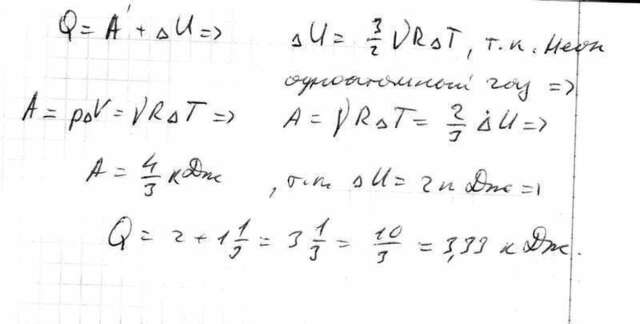 Q = A' + ΔU => ΔU = 3/2 νRΔT, т.к. Неон
одноатомный газ =>
A = pΔV = νRΔT => A = νRΔT = 2/3 ΔU =>
A = 4/3 кДж, т.к. ΔU = 2кДж =>
Q = 2 + 1 1/3 = 3 1/3 = 10/3 = 3,33 кДж.